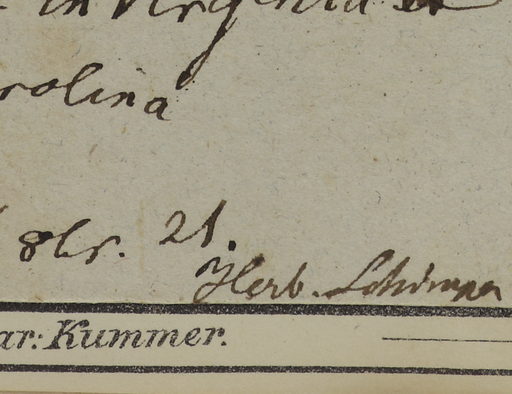 in Virginia et
rolina
8br. 21.
Herb. Schimper
ar: Kummer.